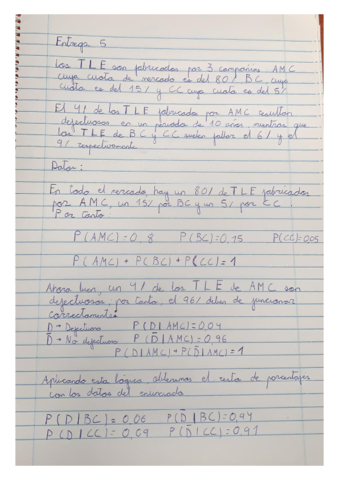 Entrega 5
Los TLE son fabricados por 3 compañías AMC
cuya cuota de mercado es del 80%, BC cuya
cuota es del 15% y CC cuya cuota es del 5%
El 4% de los TLE fabricados por AMC resultan
defectuosos en un periodo de 10 años, mientras que
los TLE de BC y CC suelen fallar el 6% y el
9% respectivamente.
Datos:
En todo el mercado, hay un 80% de TLE fabricados
por AMC, un 15% por BC y un 5% por CC
Por tanto
P(AMC)=0,8 P(BC)=0,15 P(CC)=0,05
P(AMC) + P(BC) + P(CC) = 1
Ahora bien, un 4% de los TLE de AMC son
defectuosos, por tanto, el 96% deben de funcionar
correctamente:
D → Defectuoso P(D|AMC)=0,04
D̄ → No defectuoso P(D̄|AMC)=0,96
P(D|AMC)+P(D̄|AMC)=1
Aplicando esta lógica, obtenemos el resto de porcentajes
con los datos del enunciado
P(D|BC)=0,06 P(D̄|BC)=0,94
P(D|CC)=0,09 P(D̄|CC)=0,91